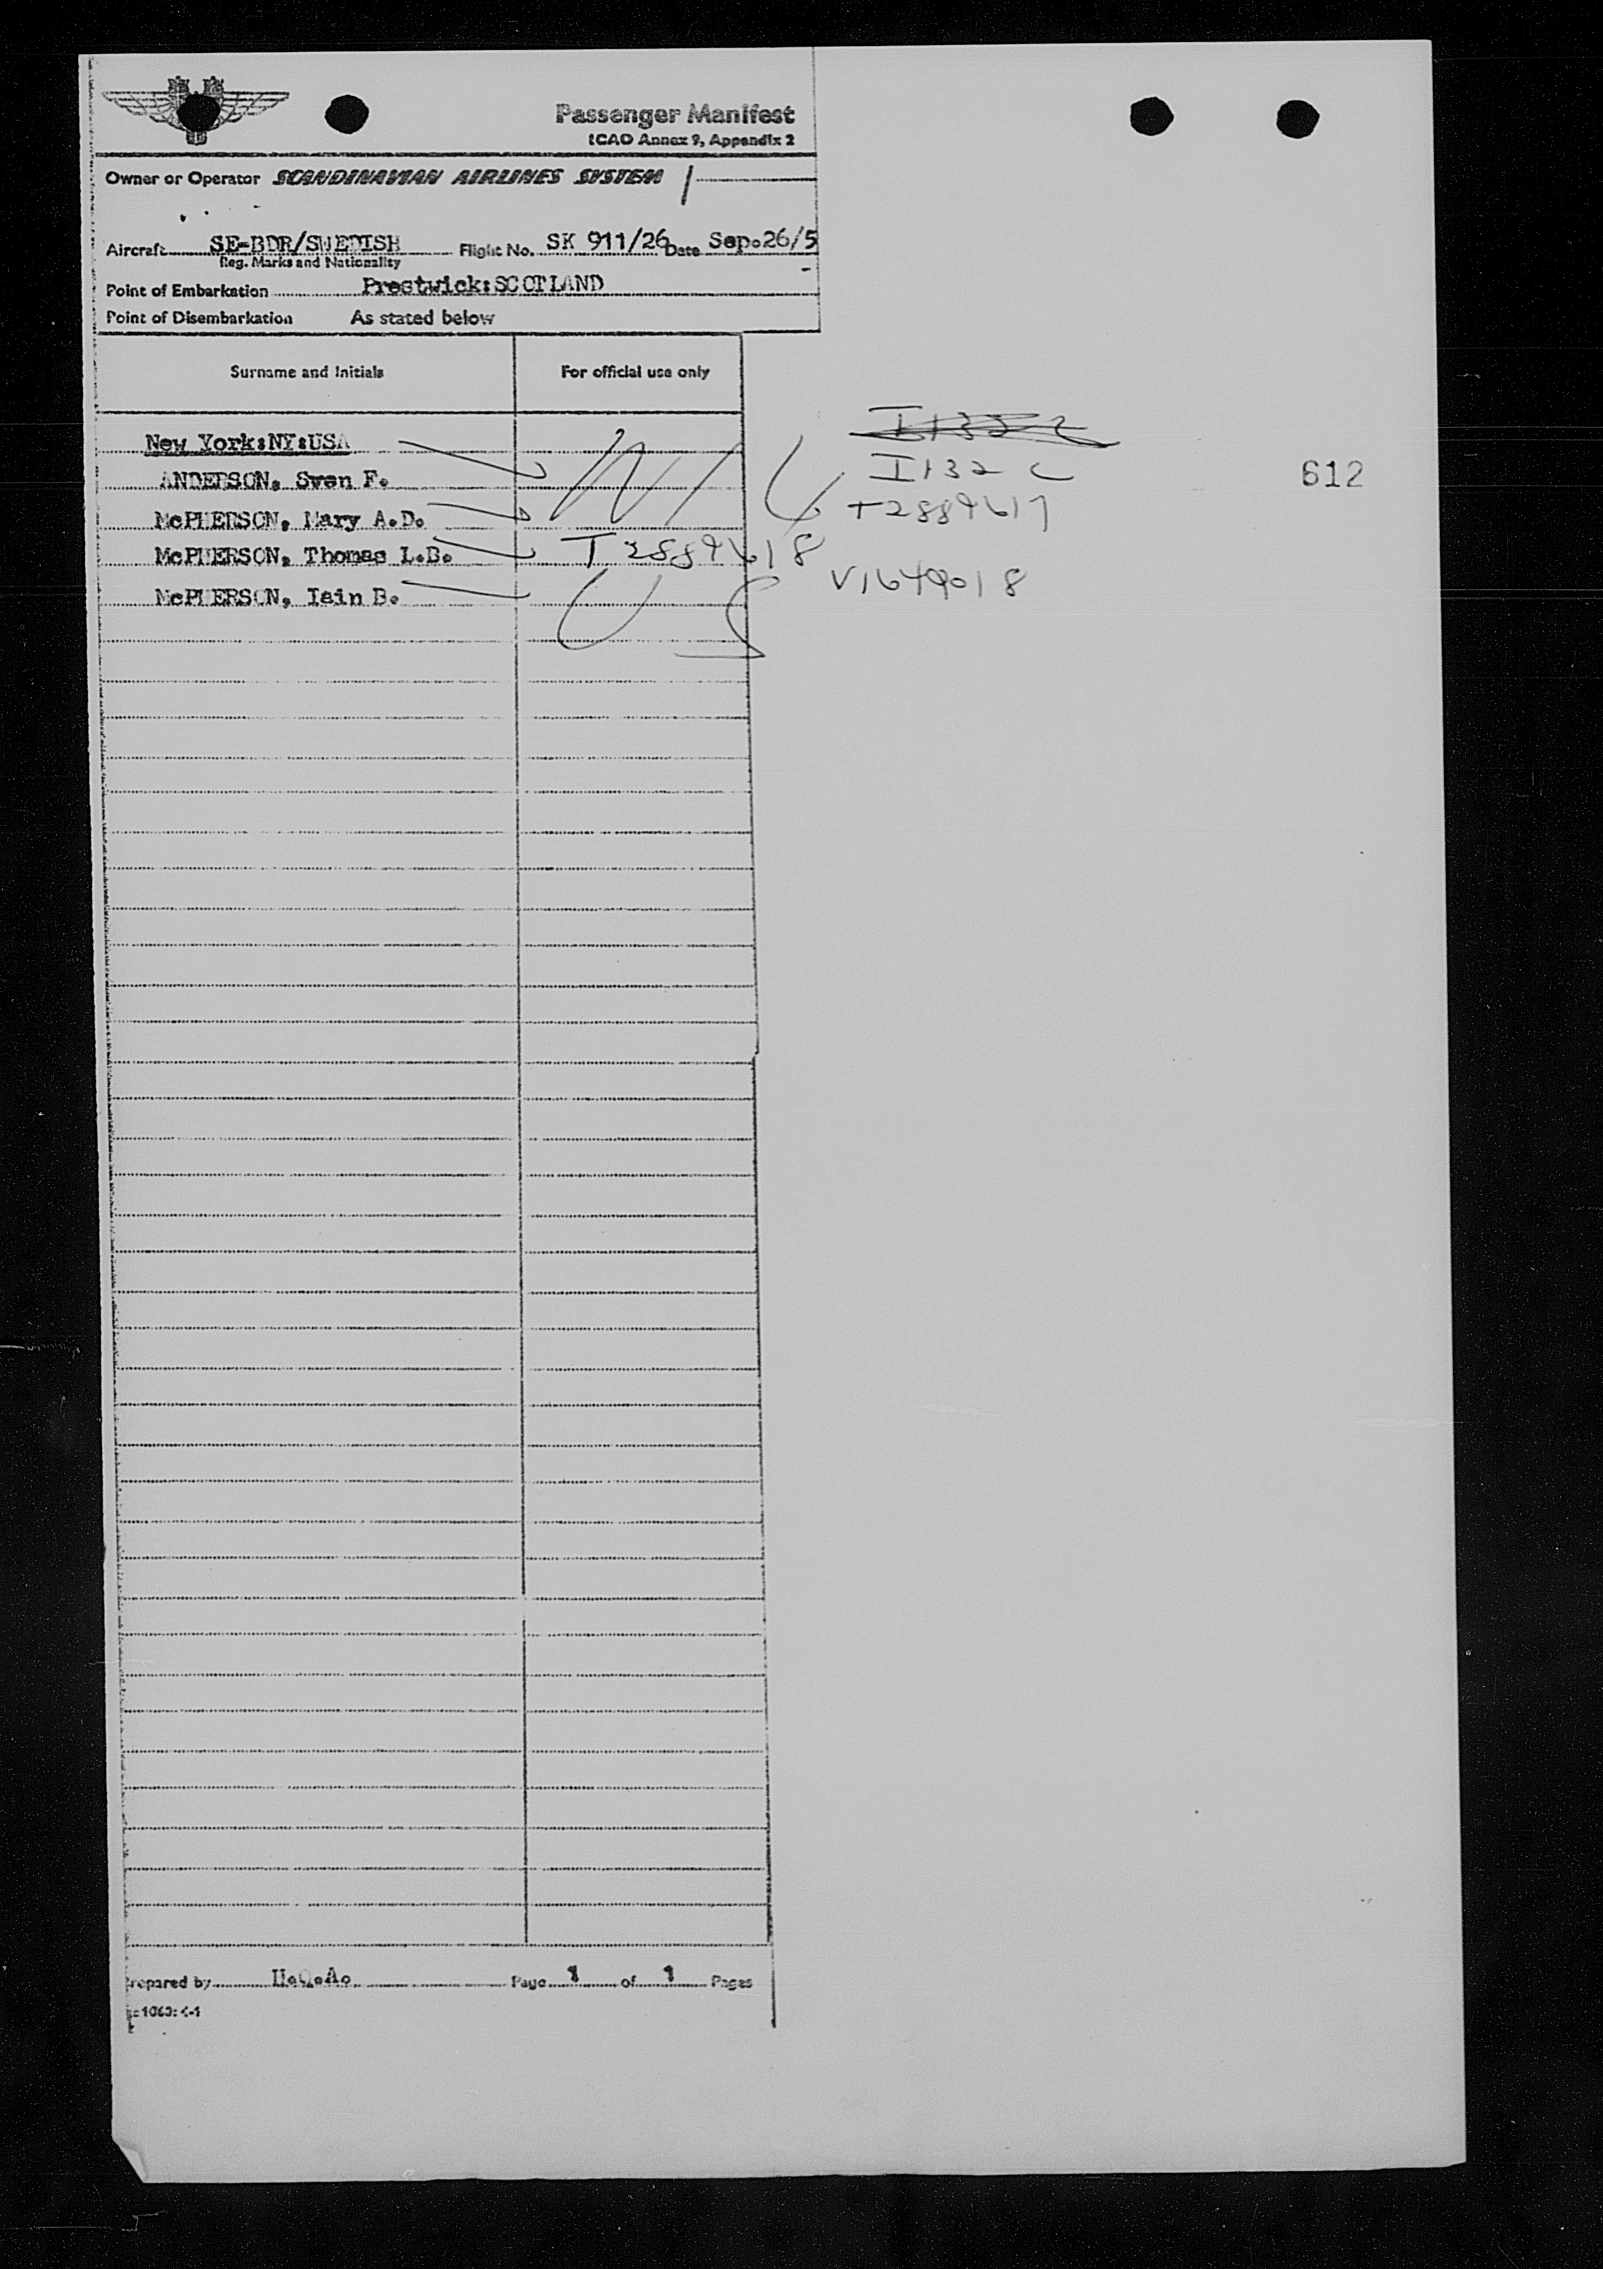 Passenger Manifest
ICAO Annex 9, Appendix 2
Owner or Operator SCANDINAVIAN AIRLINES SYSTEM
Aircraft SE-BDR/SWEDISH Flight No. SK 911/26 Date Sep.26/5
Reg. Marks and Nationality
Point of Embarkation Prestwick:SCOTLAND
Point of Disembarkation As stated below
Surname and Initials For official use only
New York:NY:USA
I132 C
ANDERSON, Sven F. I132 C 612
McPHERSON, Mary A.D. T2889617
McPHERSON, Thomas L.B. T2889618
McPHERSON, Iain B. US V1649018
Prepared by Page 1 of 1 Pages